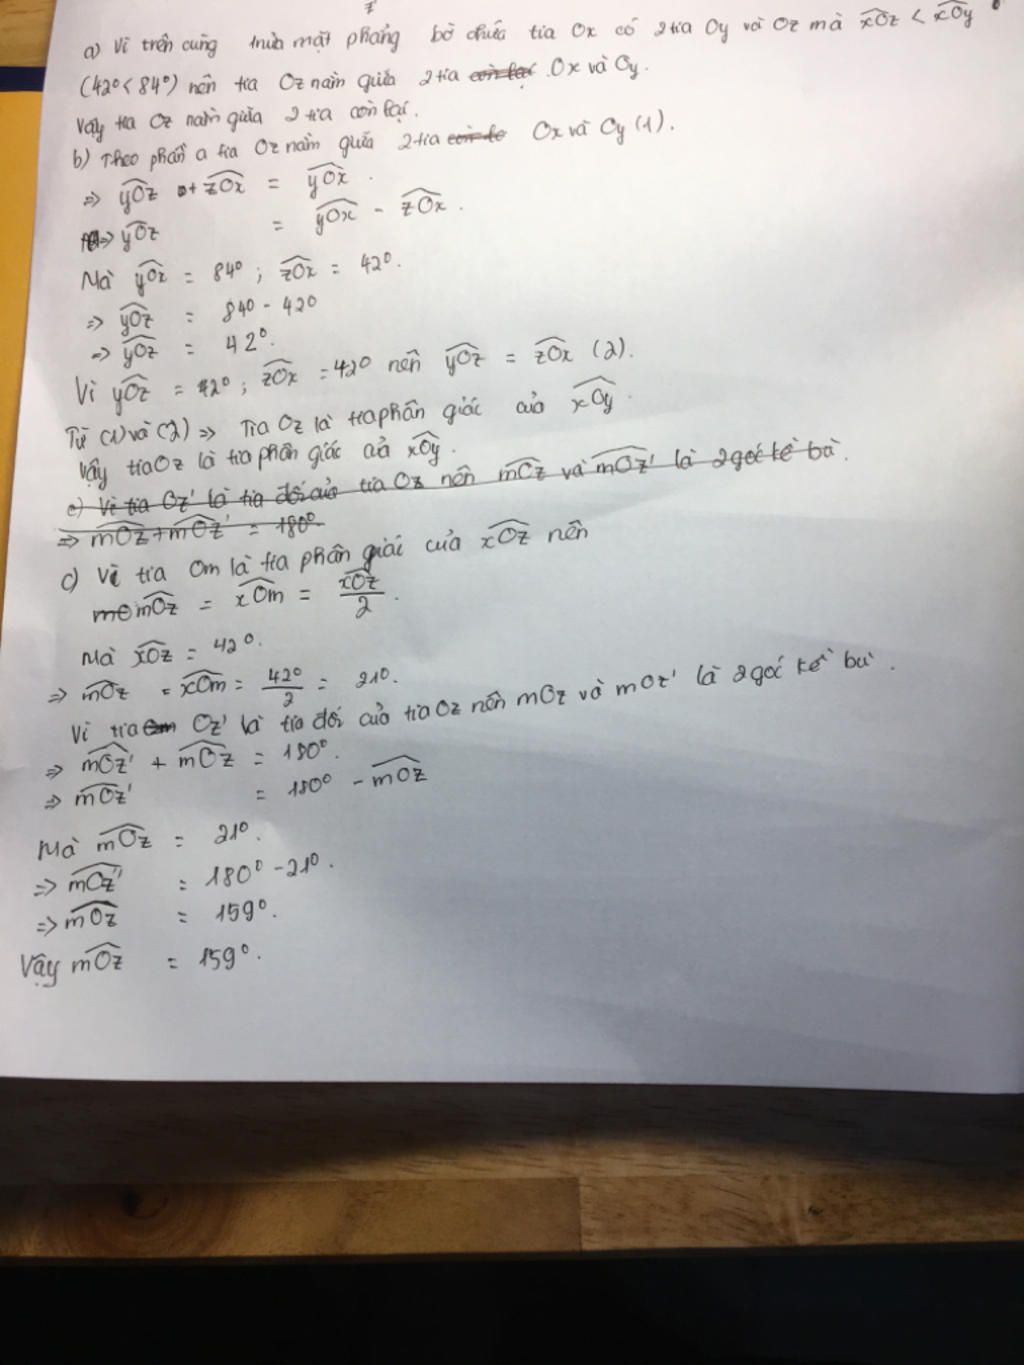 z'
a) Vì trên cùng nửa mặt phẳng bờ chứa tia Ox có 2 tia Oy và Oz mà xOz < xOy
(42° < 84°) nên tia Oz nằm giữa 2 tia còn lại Ox và Oy.
Vậy tia Oz nằm giữa 2 tia còn lại.
b) Theo phần a tia Oz nằm giữa 2 tia Ox và Oy (1).
=> yOz + zOx = yOx.
=> yOz = yOx - zOx.
Mà yOx = 84° ; zOx = 42°.
=> yOz = 84° - 42°
=> yOz = 42°.
Vì yOz = 42° ; zOx = 42° nên yOz = zOx (2).
Từ (1) và (2) => Tia Oz là tia phân giác của xOy.
Vậy tia Oz là tia phân giác của xOy.
c) Vì tia Oz' là tia đối của tia Oz nên mOz và mOz' là 2 góc kề bù.
=> mOz + mOz' = 180°.
c) Vì tia Om là tia phân giác của xOz nên
mOz = xOm = xOz/2.
Mà xOz = 42°.
=> mOz = xOm = 42°/2 = 21°.
Vì tia Oz' là tia đối của tia Oz nên mOz và mOz' là 2 góc kề bù.
=> mOz' + mOz = 180°.
=> mOz' = 180° - mOz
Mà mOz = 21°.
=> mOz' = 180° - 21°.
=> mOz = 159°.
Vậy mOz = 159°.